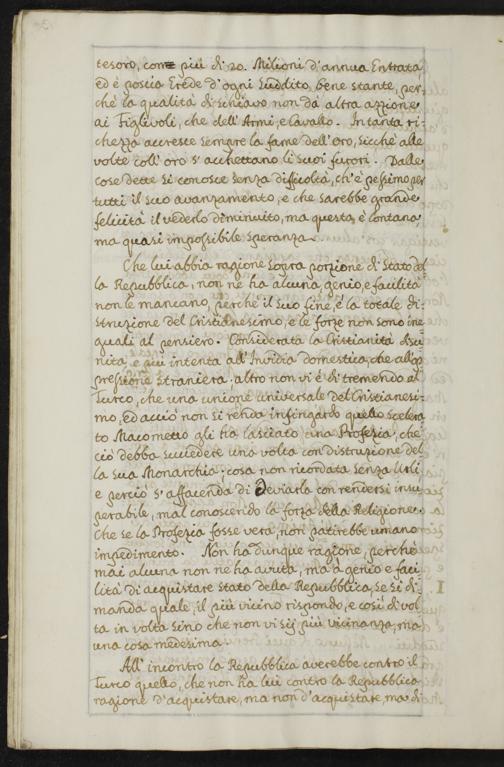 tesoro, con più di 20. Milioni d'annua Entrata,
ed è poscia Erede d'ogni Suddito, bene stante, per-
chè la qualità di schiavo non dà altra azzione
ai Figlivoli, che dell'Armi, e Cavallo. In tanta ri-
chezza accresce sempre la fame dell'oro, sicchè alle
volte coll'oro s'acchettano li suoi furori. Dalle
cose dette si conosce senza difficoltà, ch'è pessimo per
tutti il suo avanzamento, e che sarebbe grande
felicità il vederlo diminuito, ma questa, è lontana,
ma quasi impossibile speranza.
Che lui abbia ragione sopra porzione di Stato del
la Repubblica, non ne ha alcuna, genio, e facilità
non le mancano, perchè il suo fine, è la totale di-
struzione del Cristianesimo, e le forze non sono ine
guali al pensiero. Considerata la Cristianità disu
nita, e più intenta all'Invidia domestica, che all'op
pressione straniera, altro non vi è di tremendo al
Turco, che una unione universale del Cristianesi-
mo, ed acciò non si renda infingardo quello scelera
to Macometto gli ha lasciato una Profezia, che
ciò debba succedere una volta con distruzione del
la sua Monarchia: cosa non ricordata senza Urli
e perciò s'affacenda di Deviarla con rendersi insu
perabile, mal conoscendo la forza della Religione.
Che se la Profezia fosse vera, non patirebbe umano
impedimento. Non ha dunque ragione, perchè
mai alcuna non ne ha avuta, ma à genio e faci
lità di acquistare Stato della Repubblica, se si di-
manda quale, il più vicino rispondo, e così di vol
ta in volta sino che non vi sij più vicinanza, ma
una cosa medesima.
All'incontro la Repubblica averebbe contro il
Turco quello, che non ha lui contro la Repubblica
ragione d'acquistare, ma non d'acquistare, ma di